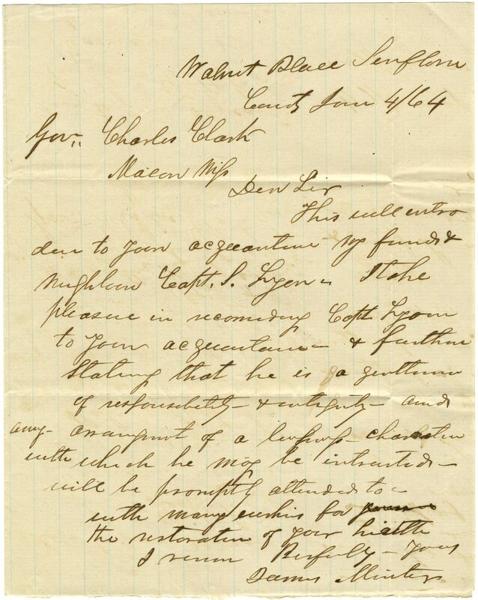 Walnut Place Sunflower
County Jan 4/64
Gov. Charles Clark
Macon Miss
Dear Sir
This will intro
duce to your acquaintance my friend &
neighbour Capt. S. Lyon - I take
pleasure in recomending Capt Lyon
to your acquaintance - & further
stating that he is a gentleman
of responsibility - & integrity - and
any - arrangment of a business character
with which he may be intrusted -
will be promptly attended to -
with many wishes for
the restoration of your health
I remain Respectfully - yours
James Minter